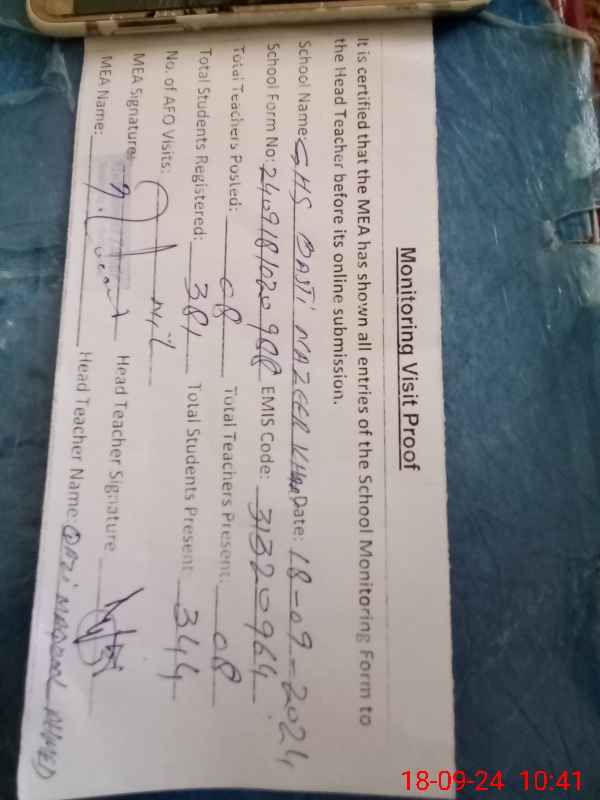 Monitoring Visit Proof
It is certified that the MEA has shown all entries of the School Monitoring Form to
the Head Teacher before its online submission.
School Name: GHS BASTi NAZEER KHAN Date: 18-09-2024
School Form No: EMIS Code: 31320964
Total Teachers Posted: 08 Total Teachers Present: 08
Total Students Registered: 381 Total Students Present 344
No. of AFO Visits: Nil
MEA Signature: Head Teacher Signature
MEA Name: Head Teacher Name: QAZi MAQBOOL AHMED
18-09-24 10:41